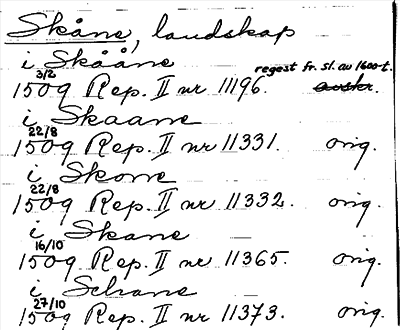 Skåne, landskap
i Skååne
regest fr. sl. av 1600-t.
3/2
1509 Rep. II nr 11196. avskr.
i Skaane
22/8
1509 Rep. II nr 11331. orig.
i Skone
22/8
1509 Rep. II nr 11332. orig.
i Skane
16/10
1509 Rep. II nr 11365. orig.
i Schane
27/10
1509 Rep. II nr 11373. orig.